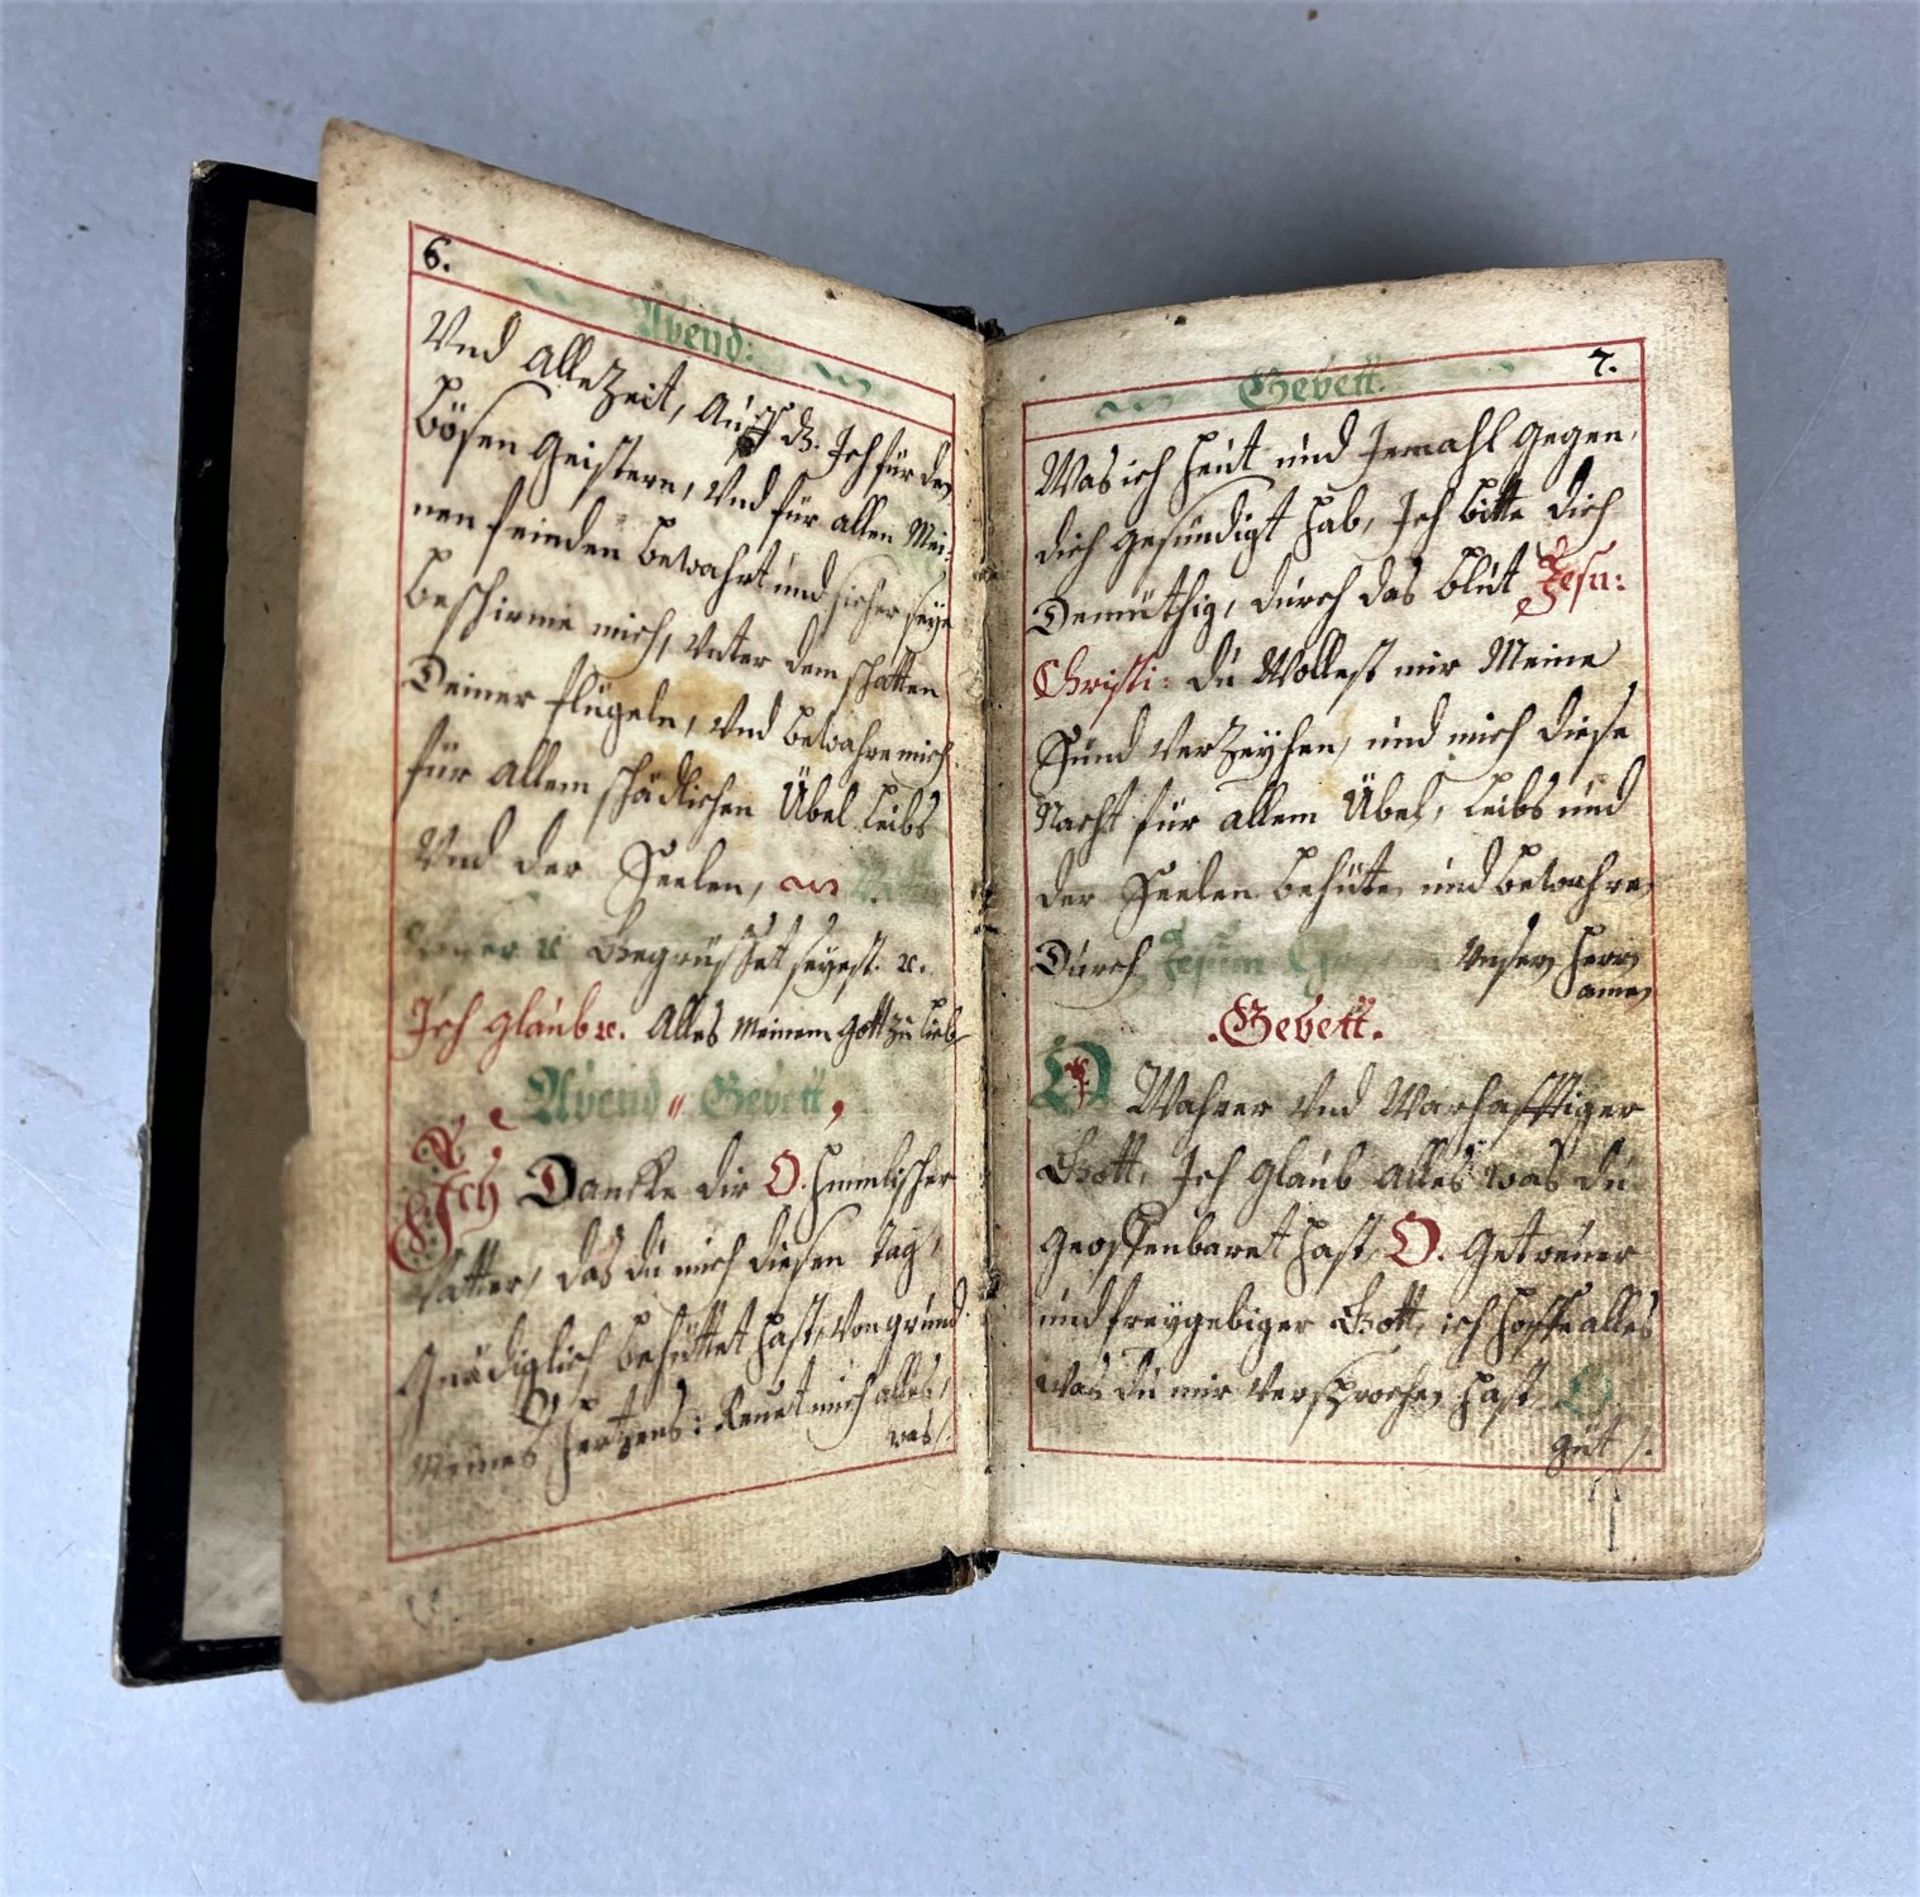 6.
Abend:
Und alle Zeit, Auff dz. Ich für den
bösen Geistern, Und für allen Mei-
nen feinden bewahrt und sicher seye
beschirme mich, Unter dem schatten
Deiner flügeln, Und bewahre mich
für allem schädlichen Übel Leibs
Und der Seelen,
unser ꝛc Gegrüsset seyest. ꝛc.
Ich glaub ꝛc. Alles Meinem Gott zu lieb
Abend Gebett,
Ich Dancke dir O. himmlischer
Vatter, das du mich diesen Tag,
Gnädiglich behüttet hast, Von grund
Meines hertzens: Reuet mich alles,
was /.
Gebett. 7.
Was ich heut und Jemahl gegen
dich gesündigt hab, Ich bitte dich
Demüthig, durch das blut Jesu:
Christi: du Wollest mir Meine
Sünd Verzeyhen, und mich diese
Nacht für allem Übel, Leibs und
der Seelen behüte, und bewahre,
Durch Jesum Unsern herrn
amen
.Gebett.
O Wahrer Und Warhafftiger
Gott, Ich glaub Alles was du
geoffenbaret hast, O. Getreuer
und freygebiger Gott, ich hoffe alles
was du mir Versprochen hast, O
gut /.